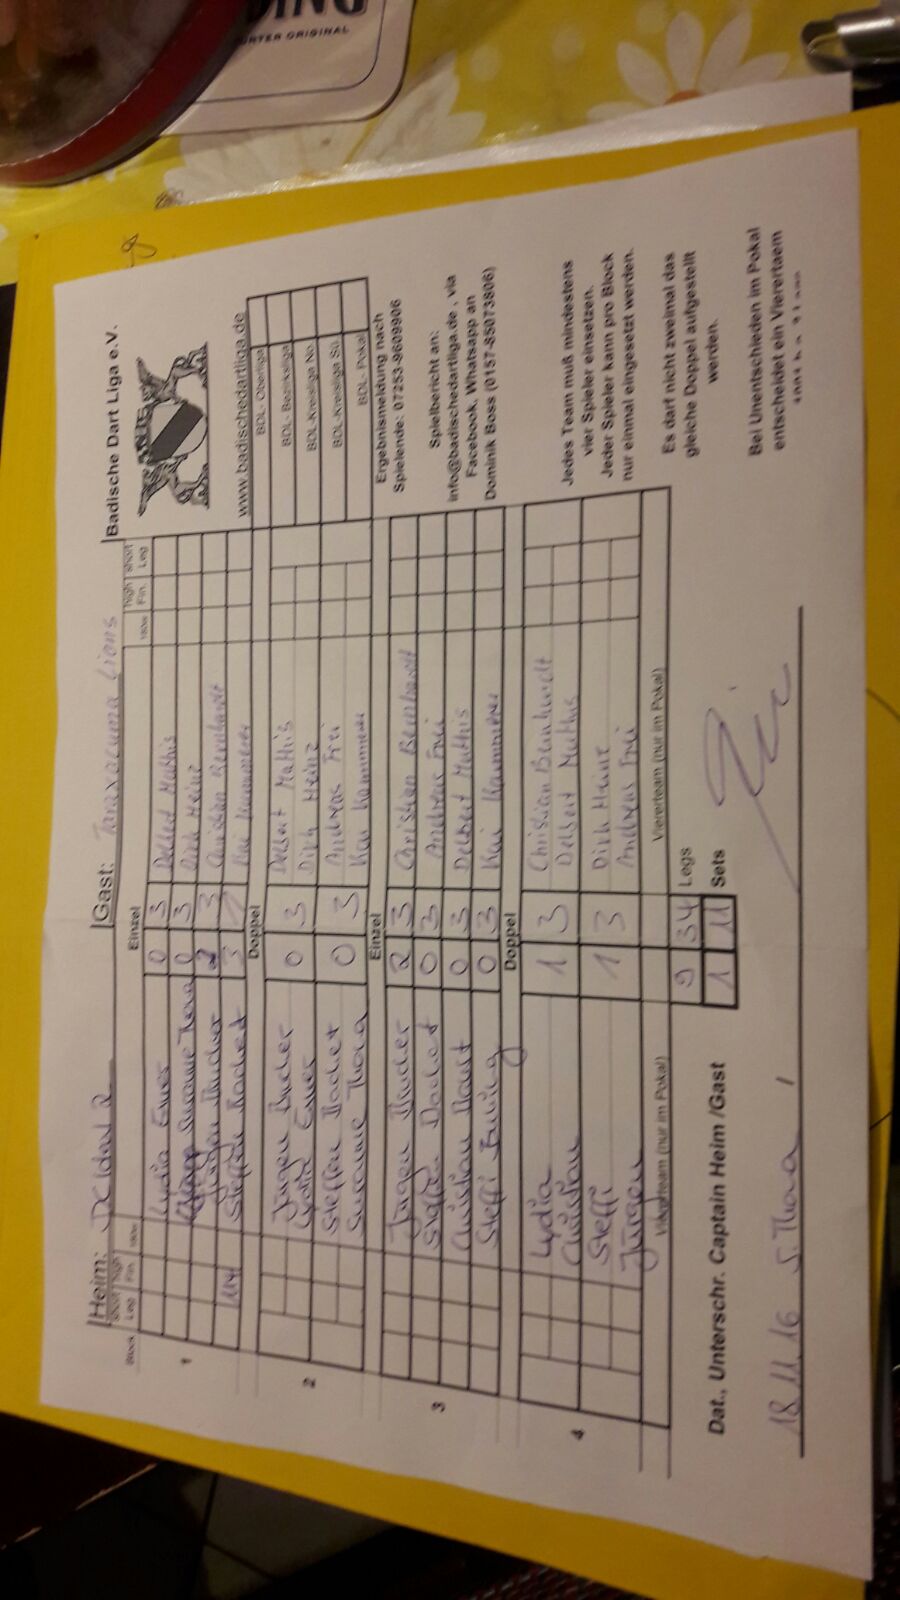 DING
RTER ORIGINAL
Heim: Gast: Taraxacuma Lions Badische Dart Liga e.V.
Block short Leg high Fin. 180er Einzel 180er high Fin. short Leg
1 Lydia 0 3 Delbert Mathis
Susanne Thoma 0 3 Dirk Heinz
Jürgen 2 3 Christian Bernhardt
114 Steffen 3 1 Kai Kammerer
Doppel
2 Jürgen 0 3 Delbert Mathis
Lydia Dirk Heinz
Steffen 0 3 Andreas Frei
Susanne Thoma Kai Kammerer
Einzel
3 Jürgen 2 3 Christian Bernhardt
Steffen 0 3 Andreas Frei
Christian 0 3 Delbert Mathis
Steffi 0 3 Kai Kammerer
Doppel
4 Lydia 1 3 Christian Bernhardt
Christian Delbert Mathis
Steffi 1 3 Dirk Heinz
Jürgen Andreas Frei
Viererteam (nur im Pokal) Viererteam (nur im Pokal)
9 34 Legs
1 11 Sets
Dat., Unterschr. Captain Heim /Gast
18.11.16 S. Thoma /
www.badischedartliga.de
BDL- Oberliga
BDL- Bezirksliga
BDL-Kreisliga No
BDL-Kreisliga Sü
BDL- Pokal
Ergebnismeldung nach
Spielende: 07253-9609906
Spielbericht an:
info@badischedartliga.de , via
Facebook, Whatsapp an
Dominik Boss (0157-85073806)
Jedes Team muß mindestens
vier Spieler einsetzen.
Jeder Spieler kann pro Block
nur einmal eingesetzt werden.
Es darf nicht zweimal das
gleiche Doppel aufgestellt
werden.
Bei Unentschieden im Pokal
entscheidet ein Vierertaem